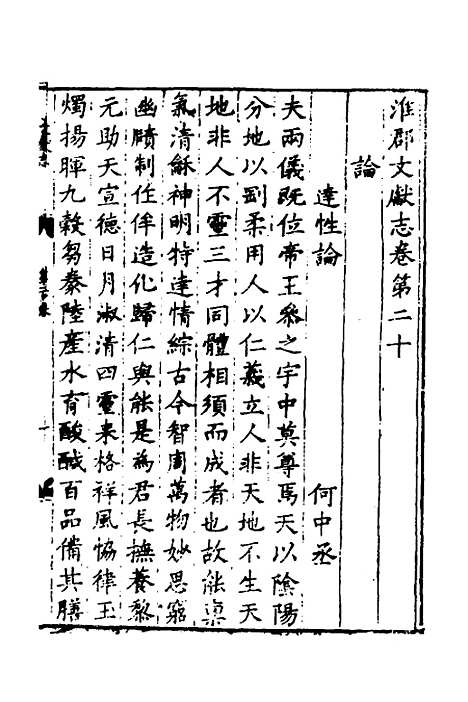 淮郡文獻志卷第二十
論
達性論 何中丞
夫兩儀既位帝王叅之宇中莫尊焉天以陰陽
分地以剛柔用人以仁義立人非天地不生天
地非人不靈三才同體相須而成者也故能稟
氣清龢神明特達情綜古今智周萬物妙思窮
幽賾制作侔造化歸仁與能是為君長撫養黎
元助天宣德日月淑清四靈来格祥風恊律玉
燭揚暉九穀芻豢陸產水育酸醎百品備其膳